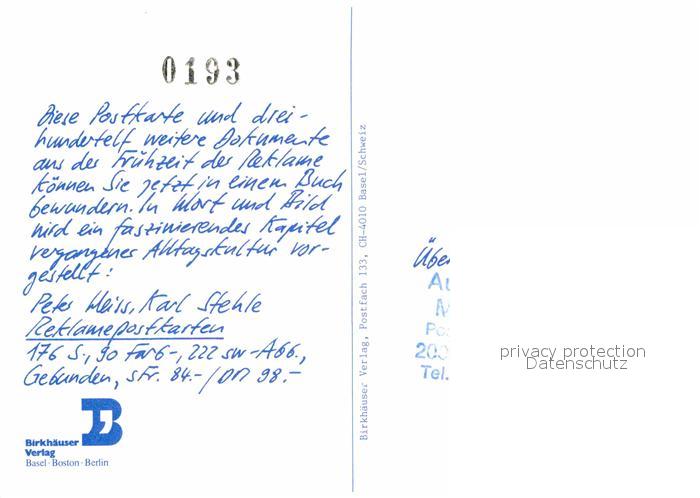 0193
Diese Postkarte und drei-
hundertelf weitere Dokumente
aus der Frühzeit der Reklame
können Sie jetzt in einem Buch
bewundern. In Wort und Bild
wird ein faszinierendes Kapitel
vergangener Alltagskultur vor-
gestellt:
Peter Weiss, Karl Stehle
Reklamepostkarten
176 S., 90 Farb-, 222 sw-Abb.,
Gebunden, sFr. 84.-/DM 98.-
Birkhäuser
Verlag
Basel · Boston · Berlin
Birkhäuser Verlag, Postfach 133, CH-4010 Basel/Schweiz
Über
Tel.
privacy protection
Datenschutz